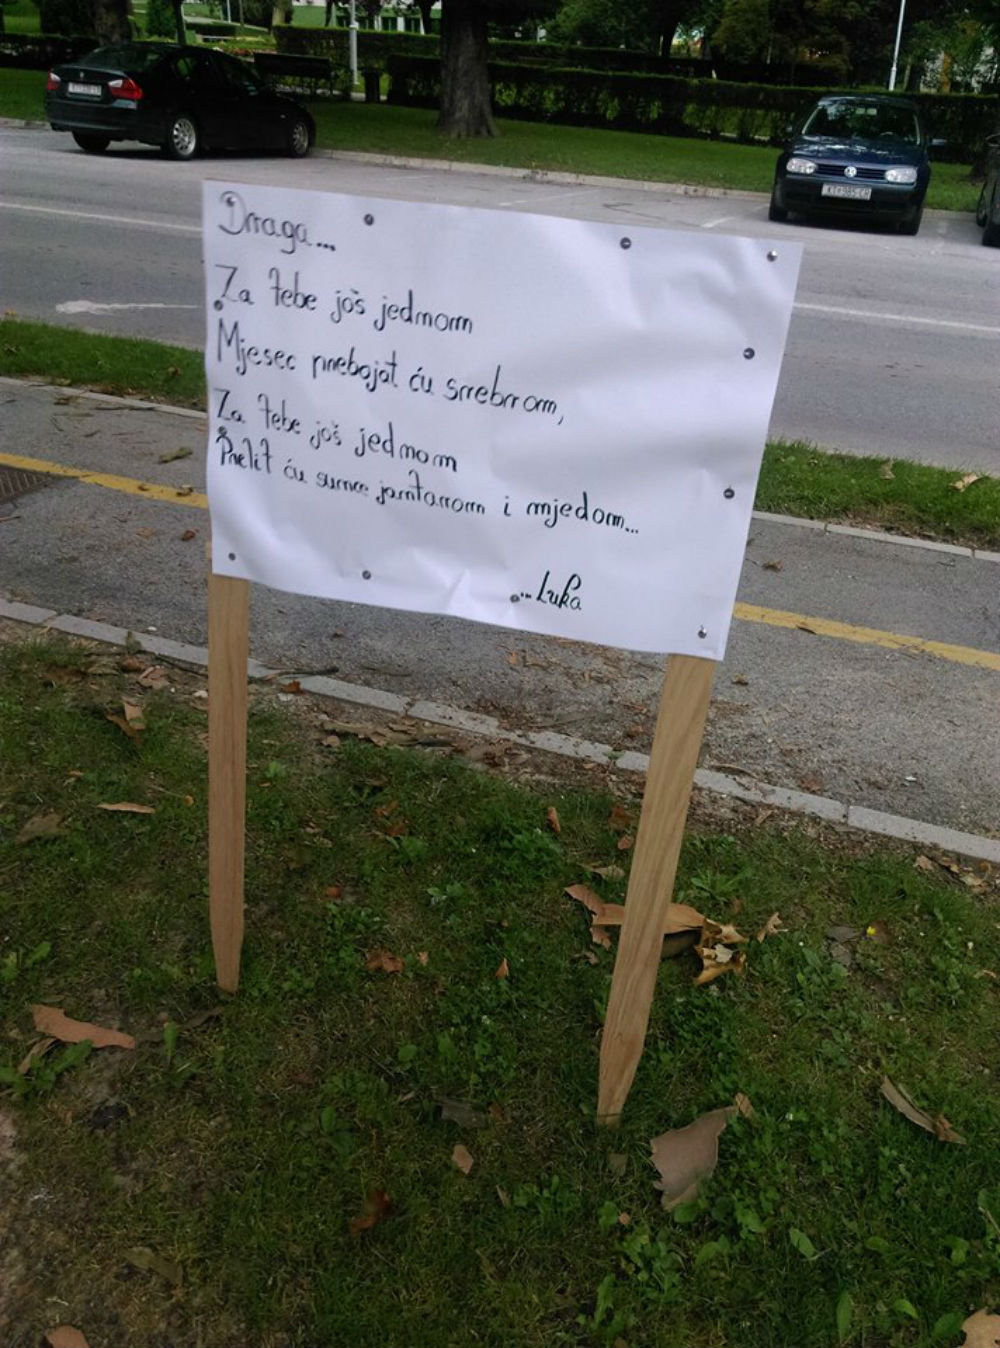 Draga...
Za tebe još jednom
Mjesec prebojat ću srebrom,
Za tebe još jednom
Prelit ću sunce jantarom i mjedom...
...Luka
KT•985-CR